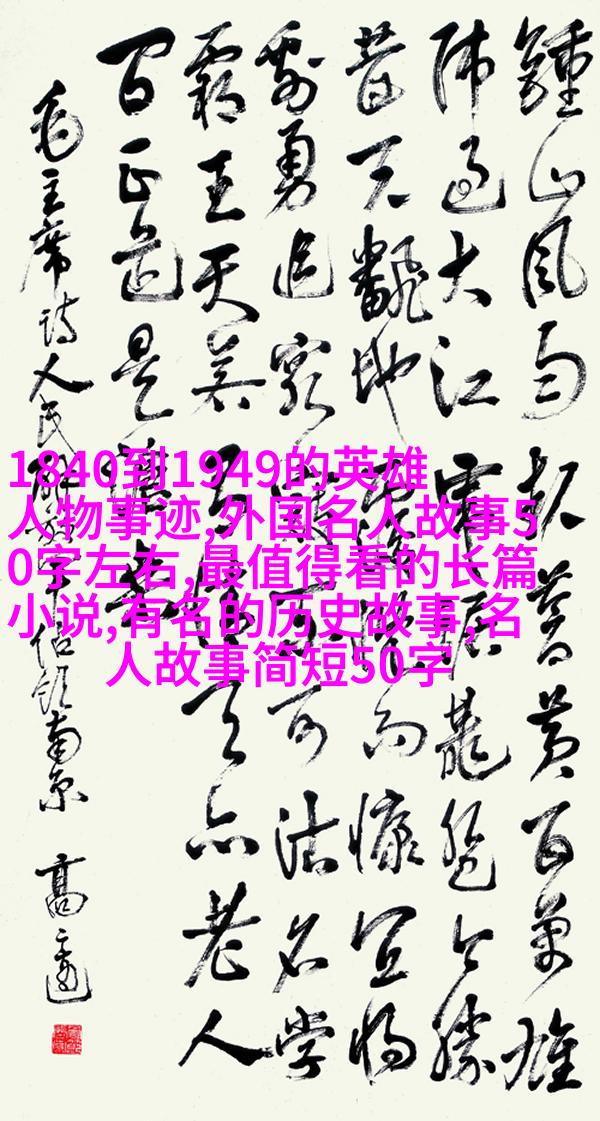 鍾山風雨起蒼黃百萬雄
师过大江虎踞龍盘今勝
昔天飜地覆慨而慷宜将
剩勇追窮寇不可沽名学
霸王天若有情天亦老人
间正道是滄桑
毛主席诗人民解放军佔领南京
1840到1949的英雄
人物事迹,外国名人故事5
0字左右,最值得看的长篇
小说,有名的历史故事,名
人故事简短50字